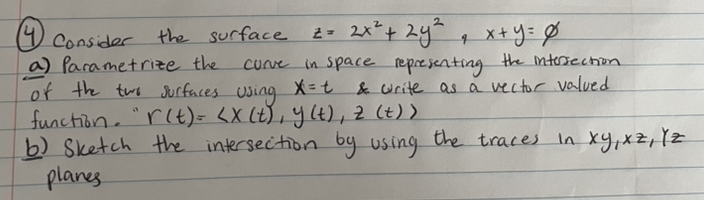 ④ Consider the surface z = 2x² + 2y², x+y=0
a) Parametrize the curve in space representing the intersection
of the two surfaces using x=t & write as a vector valued
function. " r(t)= <x(t), y(t), z(t)>
b) Sketch the intersection by using the traces in xy, xz, yz
planes